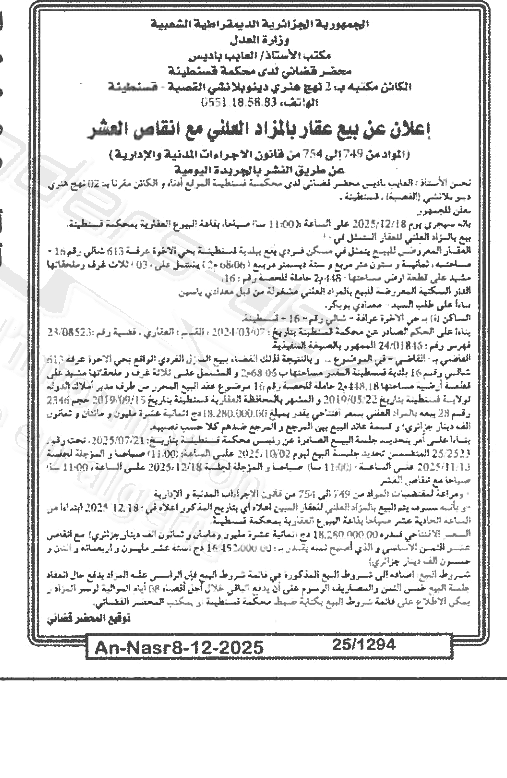 الجمهورية الجزائرية الديمقراطية الشعبية
وزارة العدل
مكتب الأستاذ/ العايب باديس
محضر قضائي لدى محكمة قسنطينة
الكائن مكتبه ب 2 نهج هنري دينوبلانشي القصبة - قسنطينة
الهاتف: 0551.18.58.83
إعلان عن بيع عقار بالمزاد العلني مع انقاص العشر
(المواد من 749 إلى 754 من قانون الاجراءات المدنية والإدارية)
عن طريق النشر بالجريدة اليومية
نحن الأستاذ: العايب باديس محضر قضائي لدى محكمة قسنطينة الموقع أدناه و الكائن مقرنا ب: 02 نهج هنري
(القصبة) ، قسنطينة .
معلن للجمهور
بأنه سيجري يوم 2025/12/18 على الساعة (11:00 سا) صباحا، بقاعة البيوع العقارية بمحكمة قسنطينة.
بيع بالمزاد العلني للعقار المتمثل في :
العقار المعروض للبيع يتمثل في مسكن فردي يقع ببلدية قسنطينة بحي الاخوة عرفة 613 شالي رقم 16 -
مساحته ثمانية و ستون متر مربع و ستة ديسمتر مربع (68.06 م2) يشتمل على : 03 ثلاث غرف وملحقاتها
مشيد على قطعة ارض مساحتها 448م2 حاملة للحصة رقم : 16.
المعروضة للبيع بالمزاد العلني مشغولة من قبل معدادي ياسين
بناءا على طلب السيد : معدادي بوبكر.
الساكن (ة) حي الاخوة عرافة - شالي رقم - 16 - قسنطينة.
بناءا على الحكم الصادر عن محكمة قسنطينة بتاريخ : 2024/03/07 ، القسم : العقاري ، قضية رقم : 23/08523
فهرس رقم : 24/01845 الممهور بالصيغة التنفيذية
القاضي ب: القاضي - في الموضوع ... و بالنتيجة لذلك القضاء ببيع المنزل الفردي الواقع بحي الاخوة عرفة 613
شالي رقم 16 بلدية قسنطينة المقدر مساحتها ب 68.06م2 و المشتمل على ثلاثة غرف و ملحقاتها مشيد على
قطعة أرضية مساحتها 448.18م2 حاملة للحصة رقم 16 موضوع عقد البيع المحرر من طرف مدير أملاك الدولة
لولاية قسنطينة بتاريخ 2019/05/22 و المشهر بالمحافظة العقارية قسنطينة بتاريخ 2019/09/15 حجم 2346
رقم 28 بيعه بالمزاد العلني بسعر افتتاحي يقدر بمبلغ 18.280.000.00 دج (ثمانية عشرة مليون و مائتان و ثمانون
ألف دينار جزائري) و قسمة عائد البيع بين المرجع و المرجع ضدهم كلا حسب نصيبه.
بناءا على أمر بتحديد جلسة البيع الصادرة عن رئيس محكمة قسنطينة بتاريخ : 2025/07/21 تحت رقم :
25/2523 المتضمن تحديد جلسة البيع ليوم 2025/10/02 على الساعة (11:00) صباحا و المؤجلة لجلسة
2025/11/13 على الساعة (11:00 سا) صباحا و المؤجلة لجلسة 2025/12/18 على الساعة (11:00 سا)
صباحا مع انقاص العشر
- ومراعاة لمقتضيات المواد من 749 إلى 754 من قانون الإجراءات المدنية و الإدارية
- و بأنه سوف يتم البيع بالمزاد العلني للعقار المبين أعلاه أي بتاريخ المذكور اعلاه في 2025.12.18 ابتداءا من
الساعة الحادية عشر صباحا بقاعة البيوع العقارية بمحكمة قسنطينة
السعر الافتتاحي قدره 18.280.000.00 دج (ثمانية عشرة مليون ومائتان و ثمانون ألف دينار جزائري) مع انقاص
عشر الثمن الاساسي و الذي أصبح ثمنه يقدر ب : 16.452.000.00 دج (ستة عشر مليون و اربعمائة و اثنان و
خمسون ألف دينار جزائري)
شروط البيع: اضافة إلى شروط البيع المذكورة في قائمة شروط البيع فإن الراسي عليه المزاد يدفع حال انعقاد
جلسة البيع خمس الثمن والمصاريف الرسوم على أن يدفع الباقي خلال أجل أقصاه 08 أيام الموالية لرسو المزاد و
يمكن الاطلاع على قائمة شروط البيع بكتابة ضبط محكمة قسنطينة أو بمكتب المحضر القضائي.
توقيع المحضر قضائي
An-Nasr8-12-2025
25/1294